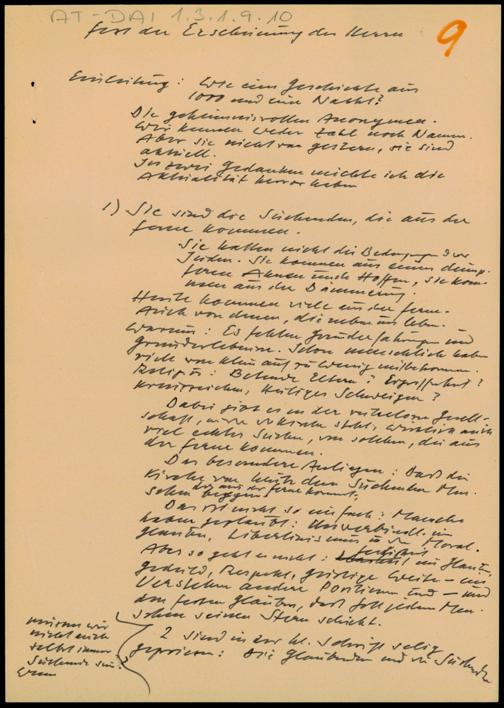 AT-DAI 1.3.1.9.10
Fest der Erscheinung des Herrn
9
Einleitung: Wie eine Geschichte aus
1000 und eine Nacht?
Die geheimnisvollen Anonymen.
Wir kennen weder Zahl noch Namen.
Aber sie nicht von gestern, sie sind
aktuell.
In zwei Gedanken möchte ich die
Aktualität hervorheben
1) Sie sind die Suchenden, die aus der
Ferne kommen.
Sie hatten nicht die Bedingung der
Juden. Sie kommen aus einem
fernen Ahnen und Hoffen, sie kom-
men aus der Dämmerung.
Heute kommen viele aus der Ferne.
Auch von denen, die neben uns leben.
Warum: Es fehlen Grunderfahrungen und
Grunderlebnisse. Schon menschlich haben
viele von klein auf zu wenig mitbekommen.
Religiös: Betende Eltern? Ehrfurcht?
Kreuzzeichen, Heiliges Schweigen?
Dabei gibt es in der ruhelosen Gesell-
schaft, in der die Kirche steht, wirklich auch
viel echtes Suchen, von solchen, die aus
der Ferne kommen.
Das besondere Anliegen: Daß die
Kirche von heute dem suchenden Men-
schen, der aus der Ferne kommt,
begegnet
Das ist nicht so einfach: Manche
haben geglaubt: Unverbindlich im
Glauben, Libertinismus in der Moral.
Aber so geht es nicht: im Glauben
Geduld, Respekt, geistige Weite – ein
Verstehen anderer Positionen – und
den festen Glauben, daß Gott jedem Men-
schen seinen Stern schickt.
2 sind in der hl. Schrift selig
gepriesen: Die Glaubenden und die Suchenden
müssen wir
nicht auch
selbst immer
Suchende sein?